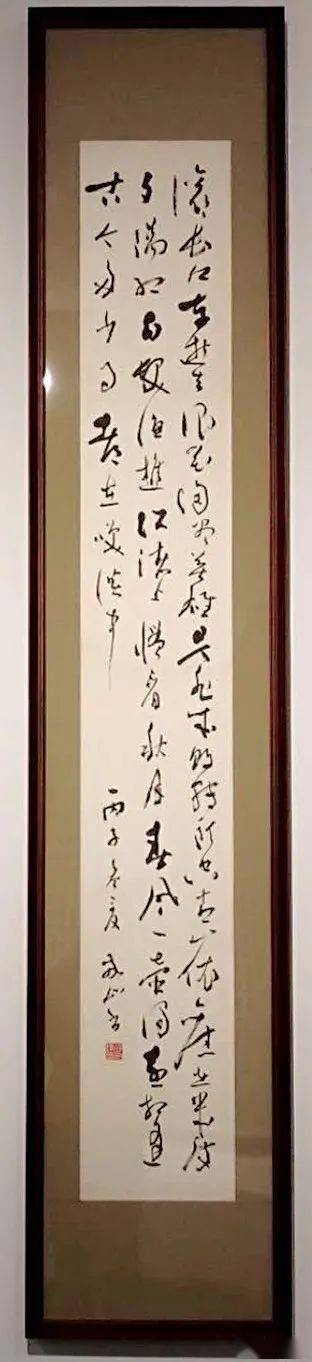 滚长江东逝水浪花淘尽英雄是非成败转头空青山依旧在几度
夕阳红白发渔樵江渚上惯看秋月春风一壶浊喜相逢
古今多少事都在笑谈中
丙子